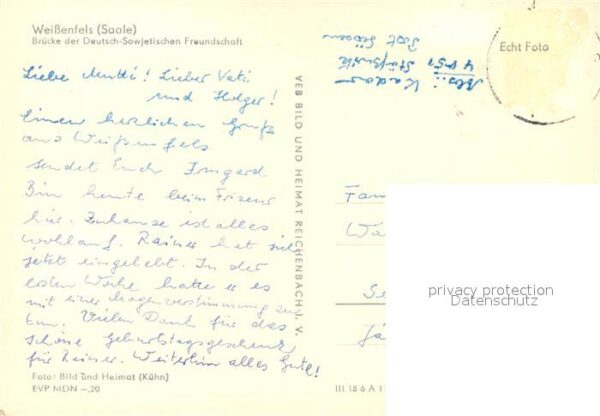 Weißenfels (Saale)
Brücke der Deutsch-Sowjetischen Freundschaft
Liebe Mutti! Lieber Vati
und Holger!
Einen herzlichen Gruß
aus Weißenfels
sendet Euch Irmgard
Bin heute beim Friseur
hier. Zuhause ist alles
wohlauf. Rainer hat sich
jetzt eingelebt. In der
ersten Woche hatte er es
mit einer Magenverstimmung zu
tun. Vielen Dank für das
schöne Geburtstagsgeschenk
für Rainer. Weiterhin alles Gute!
Foto: Bild und Heimat (Kühn)
EVP MDN –,20
VEB BILD UND HEIMAT REICHENBACH I. V.
Abs.: Kadow
Post
Echt Foto
Fam
Wa
Se
Jä
III 18 6 A 1
privacy protection
Datenschutz